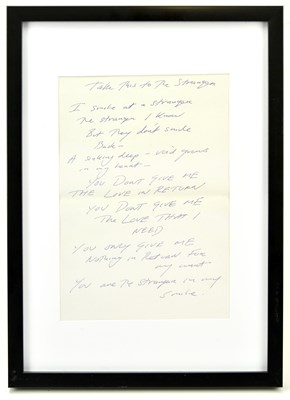 Take This to the Stranger
I smile at a stranger
The stranger I know
But they don't smile
Back -
A sinking deep - void grows
in my heart -
YOU DON'T GIVE ME
THE LOVE IN RETURN
YOU DON'T GIVE ME
THE LOVE THAT I
NEED
YOU ONLY GIVE ME
Nothing in Return For
my want
You are the stranger in my
smile.